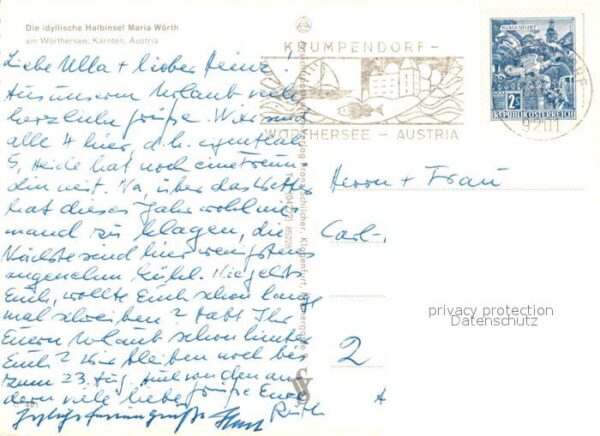 Die idyllische Halbinsel Maria Wörth
am Wörthersee, Kärnten, Austria
Liebe Ulla + lieber Heinz!
Aus unserm Urlaub viele
herzliche Grüße. Wir sind
alle 4 hier, d.h. eigentlich
5, Heide hat noch eine Freun-
din mit. Na, über das Wetter
hat dieses Jahr wohl nie-
mand zu klagen, die
Nächte sind hier wenigstens
angenehm kühl. Wie geht's
Euch, wollte Euch schon lange
mal schreiben? Habt Ihr
Euern Urlaub schon hinter
Euch? Wir bleiben noch bis
zum 23. Aug. Und von den an-
dern viele liebe Grüße Eure
Ruth
KRUMPENDORF –
WÖRTHERSEE – AUSTRIA
KLAGENFURT
2 S
REPUBLIK ÖSTERREICH
9201
Verlag Franz Schilcher, Klagenfurt
Herrn + Frau
Carl-
2
privacy protection
Datenschutz